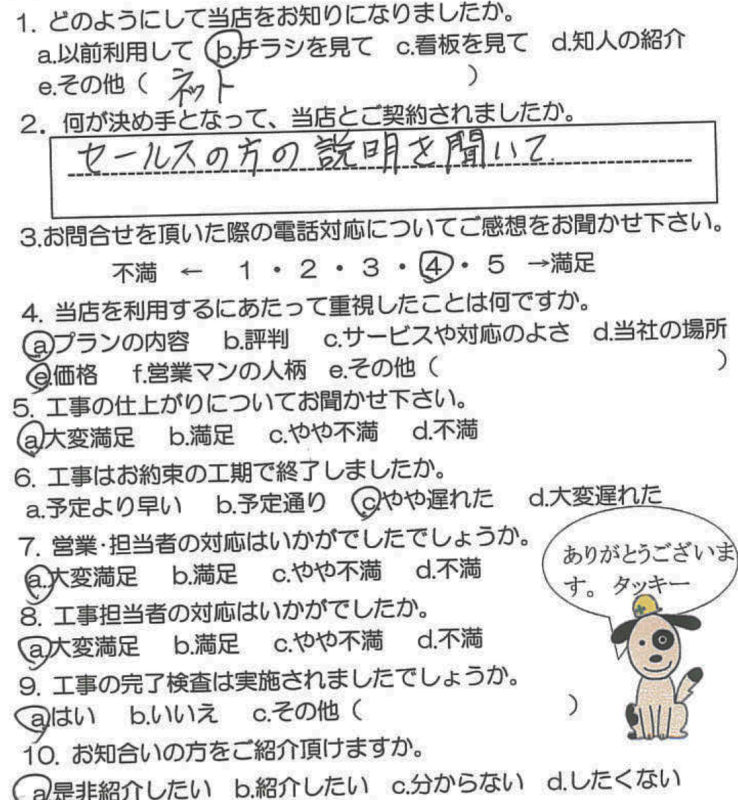 1. どのようにして当店をお知りになりましたか。
a.以前利用して b.チラシを見て c.看板を見て d.知人の紹介
e.その他（ ネット ）
2. 何が決め手となって、当店とご契約されましたか。
セールスの方の説明を聞いて.
3.お問合せを頂いた際の電話対応についてご感想をお聞かせ下さい。
不満 ← 1・2・3・4・5 →満足
4. 当店を利用するにあたって重視したことは何ですか。
a.プランの内容 b.評判 c.サービスや対応のよさ d.当社の場所
e.価格 f.営業マンの人柄 e.その他（ ）
5. 工事の仕上がりについてお聞かせ下さい。
a.大変満足 b.満足 c.やや不満 d.不満
6. 工事はお約束の工期で終了しましたか。
a.予定より早い b.予定通り c.やや遅れた d.大変遅れた
7. 営業・担当者の対応はいかがでしたでしょうか。
a.大変満足 b.満足 c.やや不満 d.不満
8. 工事担当者の対応はいかがでしたか。
a.大変満足 b.満足 c.やや不満 d.不満
9. 工事の完了検査は実施されましたでしょうか。
a.はい b.いいえ c.その他（ ）
10. お知合いの方をご紹介頂けますか。
a.是非紹介したい b.紹介したい c.分からない d.したくない
ありがとうございま
す。 タッキー